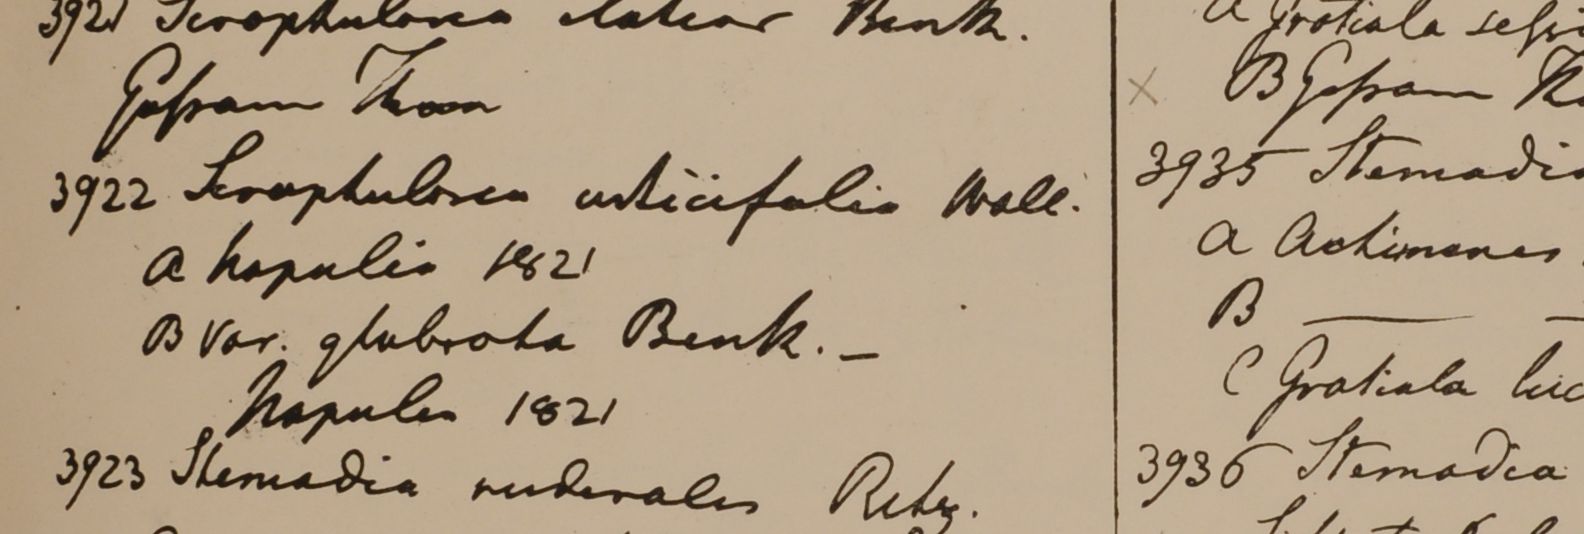 3921 Scrophularia elatior Benth.
Gossam Than
3922 Scrophularia urticifolia Wall.
a Napalia 1821
B Var. glabrata Benth. —
Napalia 1821
3923 Stemodia ruderales Retz.
a Gratiola sessi
× B Gossam Th
3935 Stemodia
a Achimenes
B — —
C Gratiola luc
3936 Stemodia